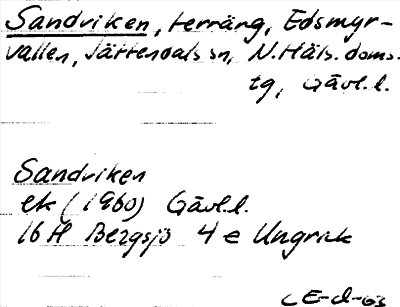 Sandviken, terräng, Edsmyr-
vallen, Jättendals sn, N. Häls. doms.
tg, Gävl. l.
Sandviken
ek (1960) Gävl. l.
16 H Bergsjö 4 e Ungrak
CE-d-63